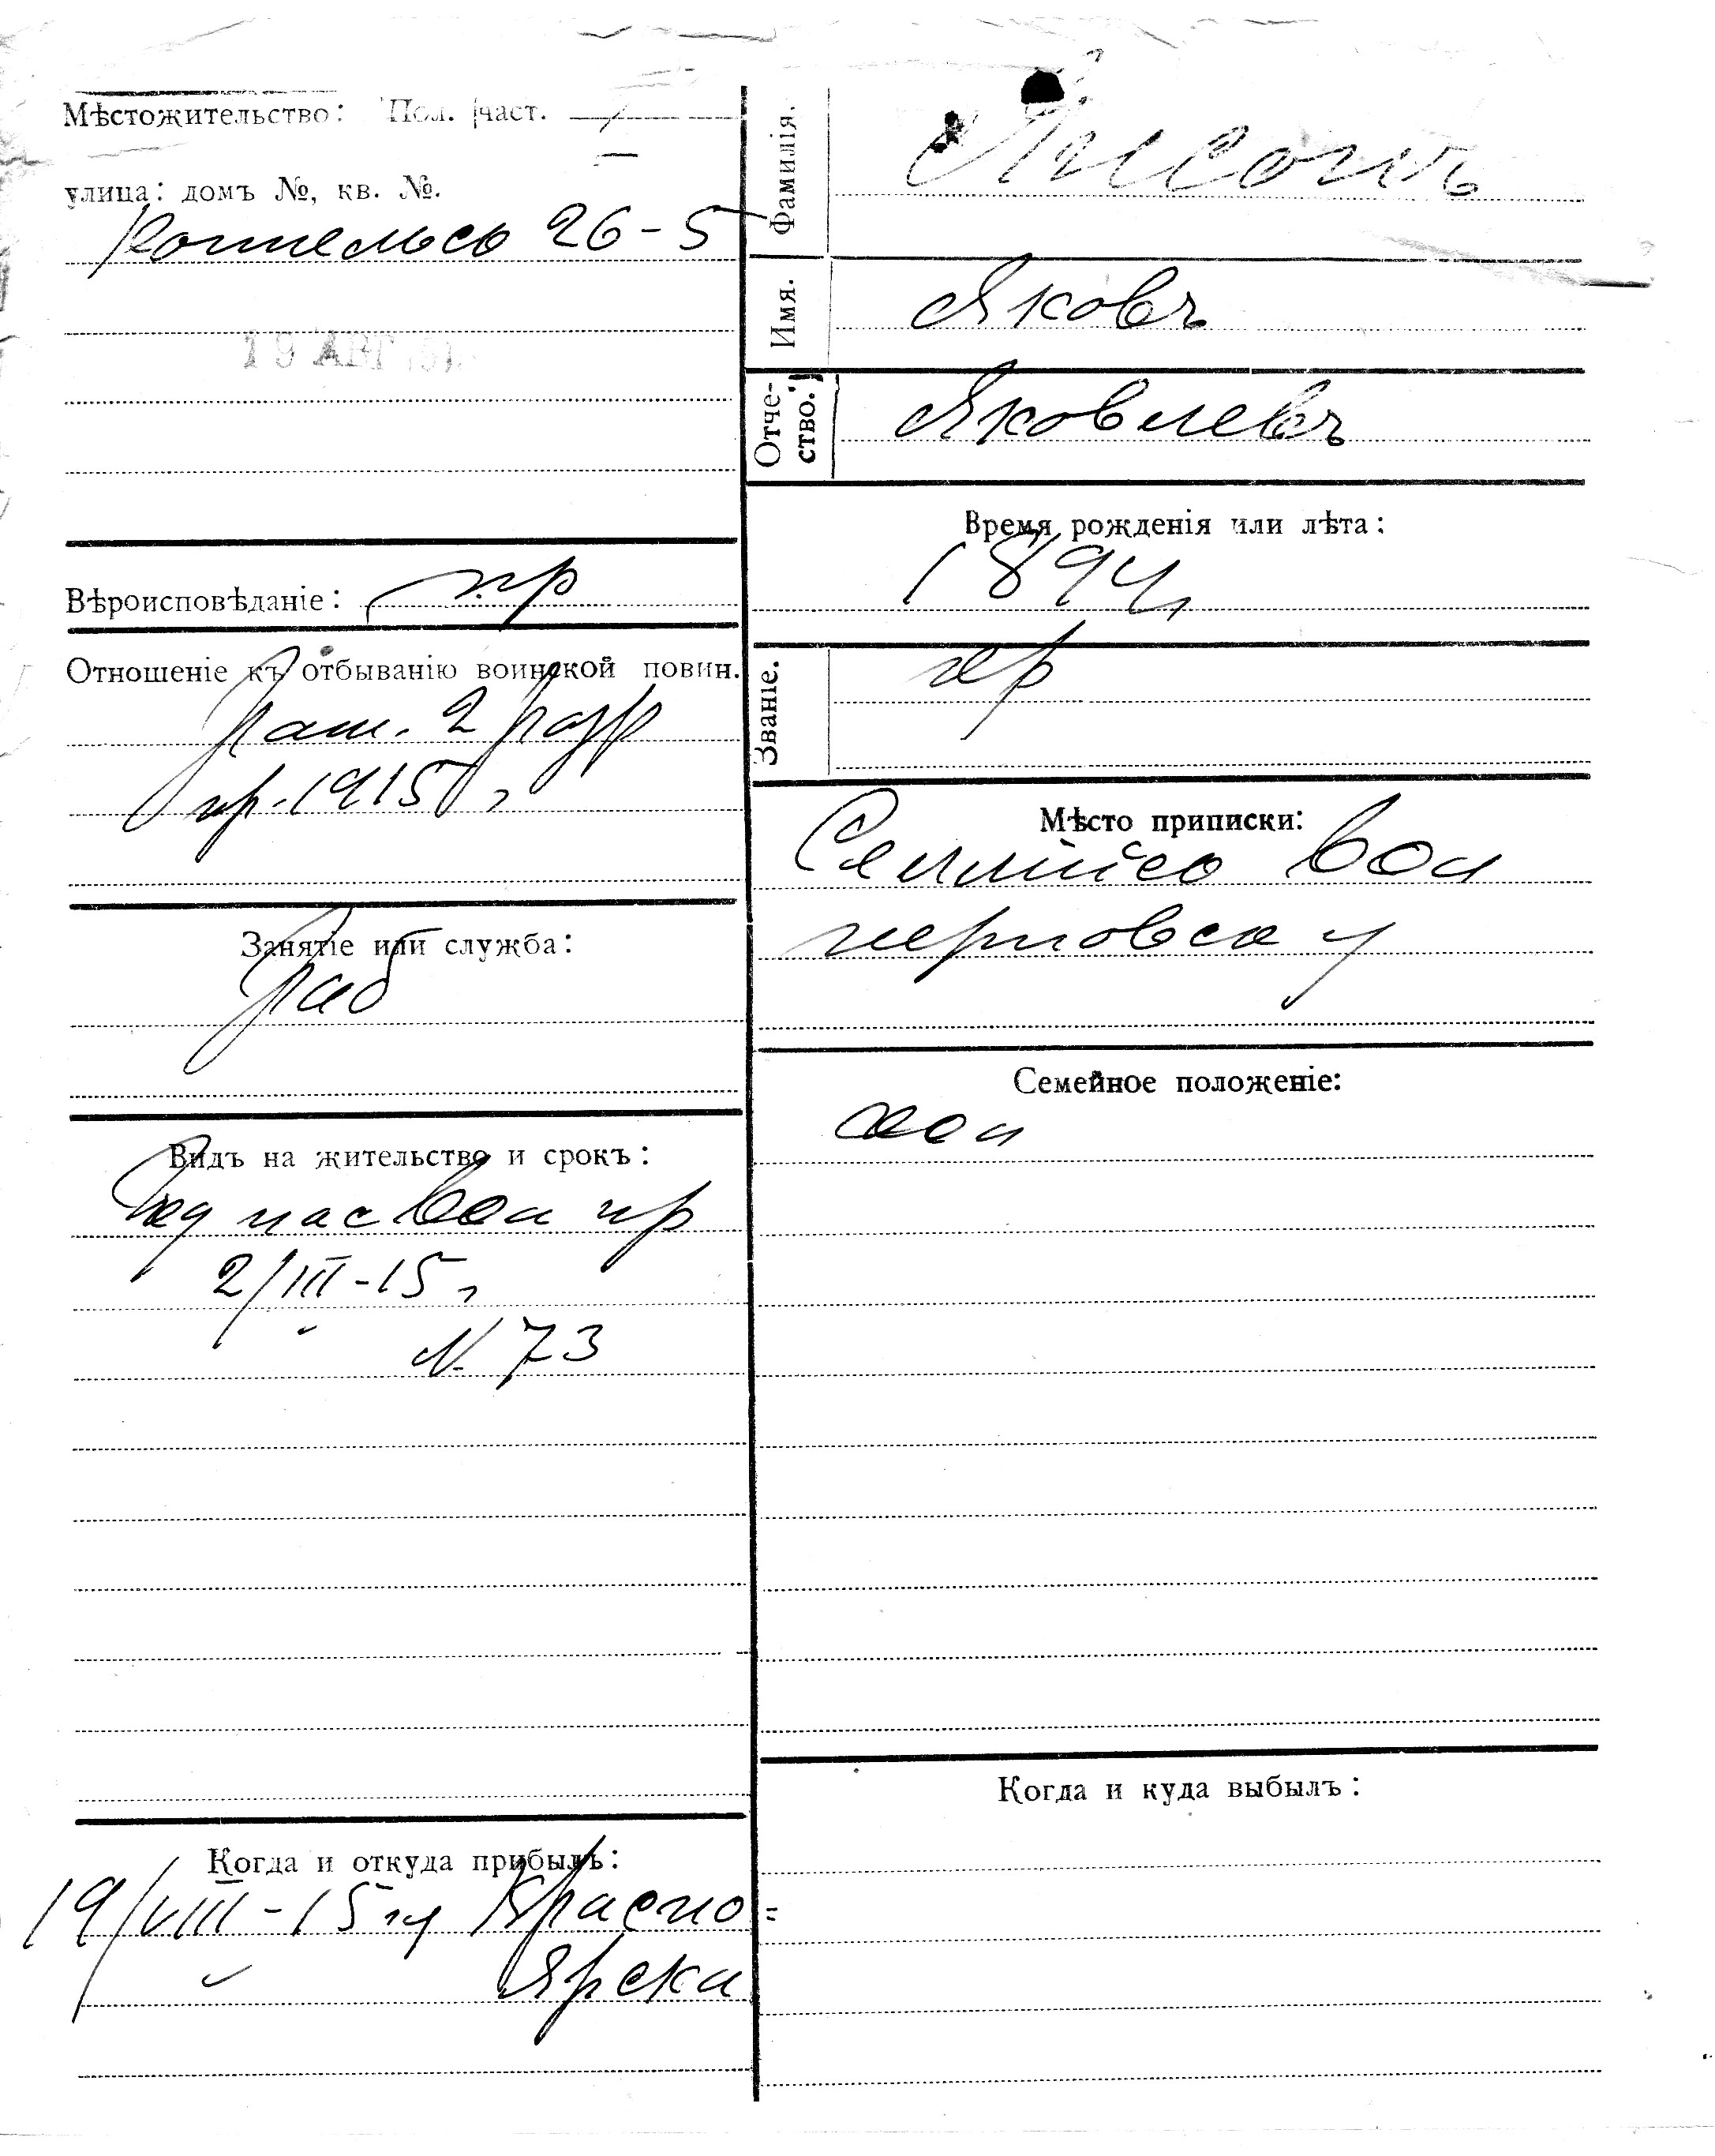 Мѣстожительство: Пол. част.
улица: домъ №, кв. №.
26-5
19 АВГ
Вѣроисповѣданіе: пр
Отношеніе къ отбыванію воинской повин.
рат. 2 разр
пр. 1915 г
Занятіе или служба:
раб
Видъ на жительство и срокъ:
год пас вол пр
2/III-15 г
N 73
Когда и откуда прибылъ:
19/VIII-15 г Красно=
ярска
Фамилія.
Имя. Яковъ
Отче-
ство. Яковлевъ
Время рожденія или лѣта:
1894
Званіе. кр
Мѣсто приписки:
вол
у
Семейное положеніе:
хол
Когда и куда выбылъ: